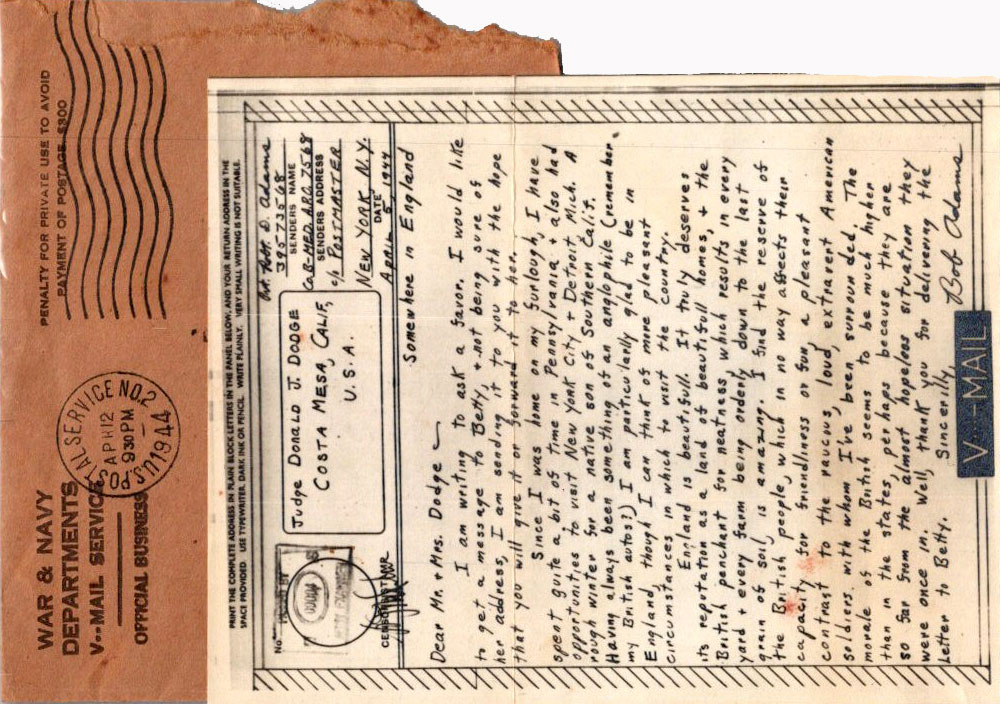 WAR & NAVY
DEPARTMENTS
V···MAIL SERVICE
OFFICIAL BUSINESS
U.S. POSTAL SERVICE NO. 2
APR 12
9 30 PM
1944
PENALTY FOR PRIVATE USE TO AVOID
PAYMENT OF POSTAGE, $300
PRINT THE COMPLETE ADDRESS IN PLAIN BLOCK LETTERS IN THE PANEL BELOW, AND YOUR RETURN ADDRESS IN THE
SPACE PROVIDED. USE TYPEWRITER, DARK INK OR PENCIL. WRITE PLAINLY. VERY SMALL WRITING IS NOT SUITABLE.
No.
Judge DONALD J. DODGE
COSTA MESA, CALIF,
U.S.A.
D. Adams
39573568
SENDERS NAME
Co B-MED. A.P.O. 7568
SENDERS ADDRESS
c/o POSTMASTER
NEW YORK N.Y.
DATE
APRIL 5, 1944
Somewhere in England
Dear Mr. + Mrs. Dodge —
I am writing to ask a favor. I would like
to get a message to Betty, + not being sure of
her address, I am sending it to you with the hope
that you will give it or forward it to her.
Since I was home on my furlough, I have
spent quite a bit of time in Pennsylvania + also had
opportunities to visit New York City + Detroit, Mich. A
rough winter for a native son of Southern Calif.
Having always been something of an anglophile (remember
my British autos!) I am particularly glad to be in
England, though I can think of more pleasant
circumstances in which to visit the country.
England is beautifull. It truly deserves
its reputation as a land of beautifull homes, + the
British penchant for neatness which results in every
yard + every farm being orderly down to the last
grain of soil, is amazing. I find the reserve of
the British people, which in no way affects their
capacity for friendliness or fun, a pleasant
contrast to the raucus, loud, extravert American
soldiers with whom I've been surrounded. The
morale of the British seems to be much higher
than in the states, perhaps because they are
so far from the almost hopeless situation they
were once in. Well, thank you for delivering the
letter to Betty.
Sincerilly,
Bob Adams
V···MAIL